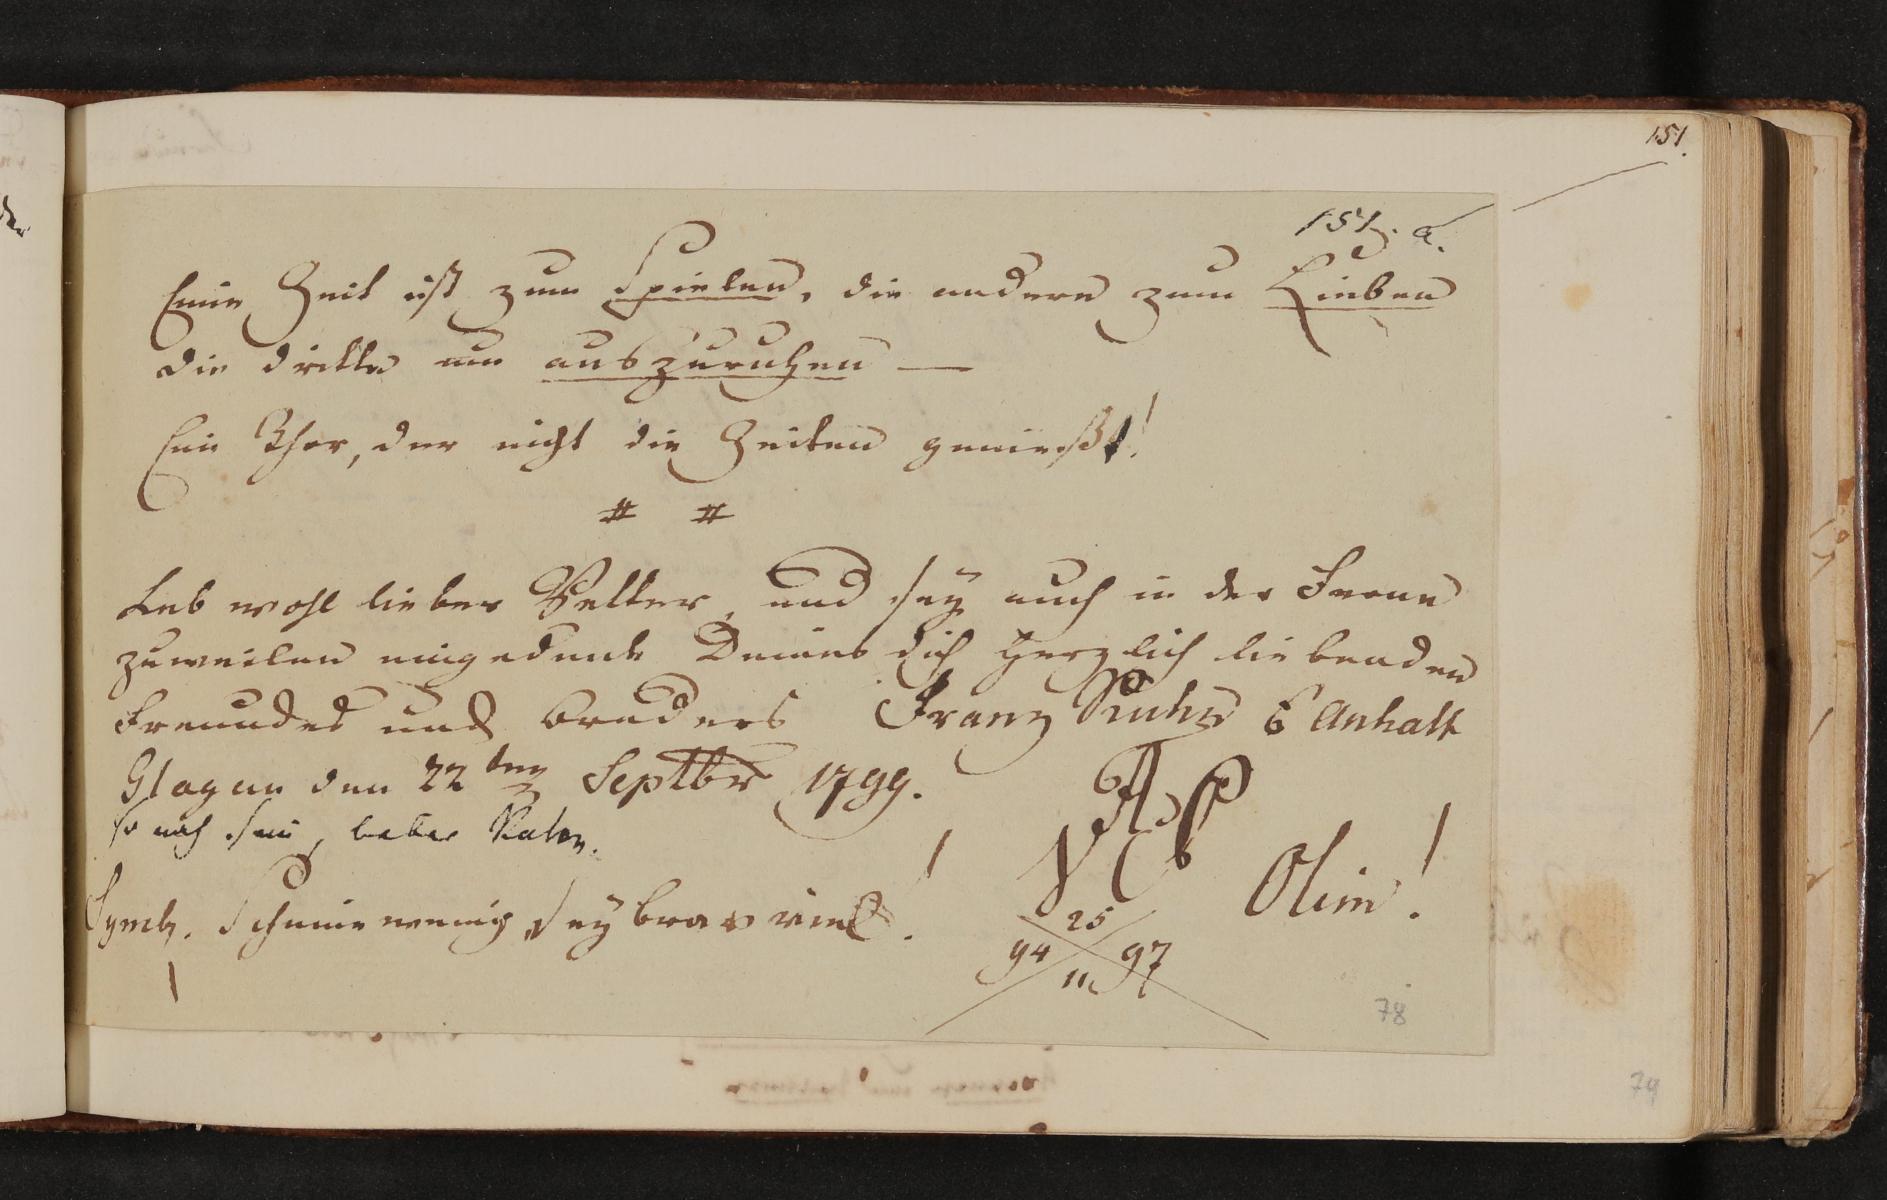 151.
151. a.
Eine Zeit ist zum Spielen, die andere zum Lieben
die dritte um auszuruhen —
Ein Thor, der nicht die Zeiten genießt!
# #
Leb wohl lieber Vetter, und sey auch in der Ferne
zuweilen eingedenk Deines dich herzlich liebenden
Freundes und Bruders Franz Anhalt
Glogau den 22ten Septbr 1799.
lieber Vater.
Symb. Scheine wenig, sey brav viel!
Olim!
25
94 97
11
78
79